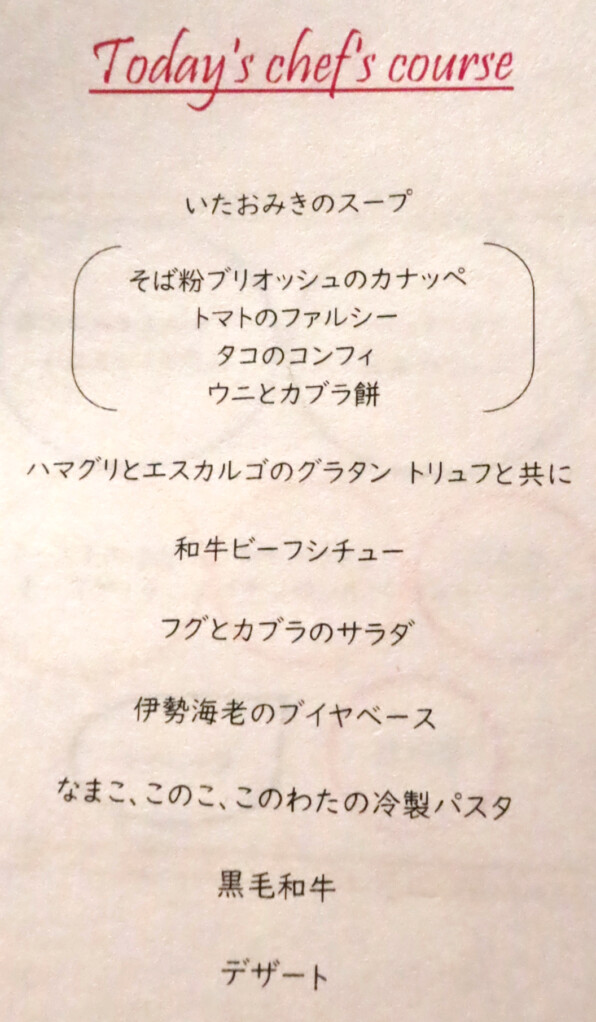 Today's chef's course
いたおみきのスープ
そば粉ブリオッシュのカナッペ
トマトのファルシー
タコのコンフィ
ウニとカブラ餅
ハマグリとエスカルゴのグラタン トリュフと共に
和牛ビーフシチュー
フグとカブラのサラダ
伊勢海老のブイヤベース
なまこ、このこ、このわたの冷製パスタ
黒毛和牛
デザート